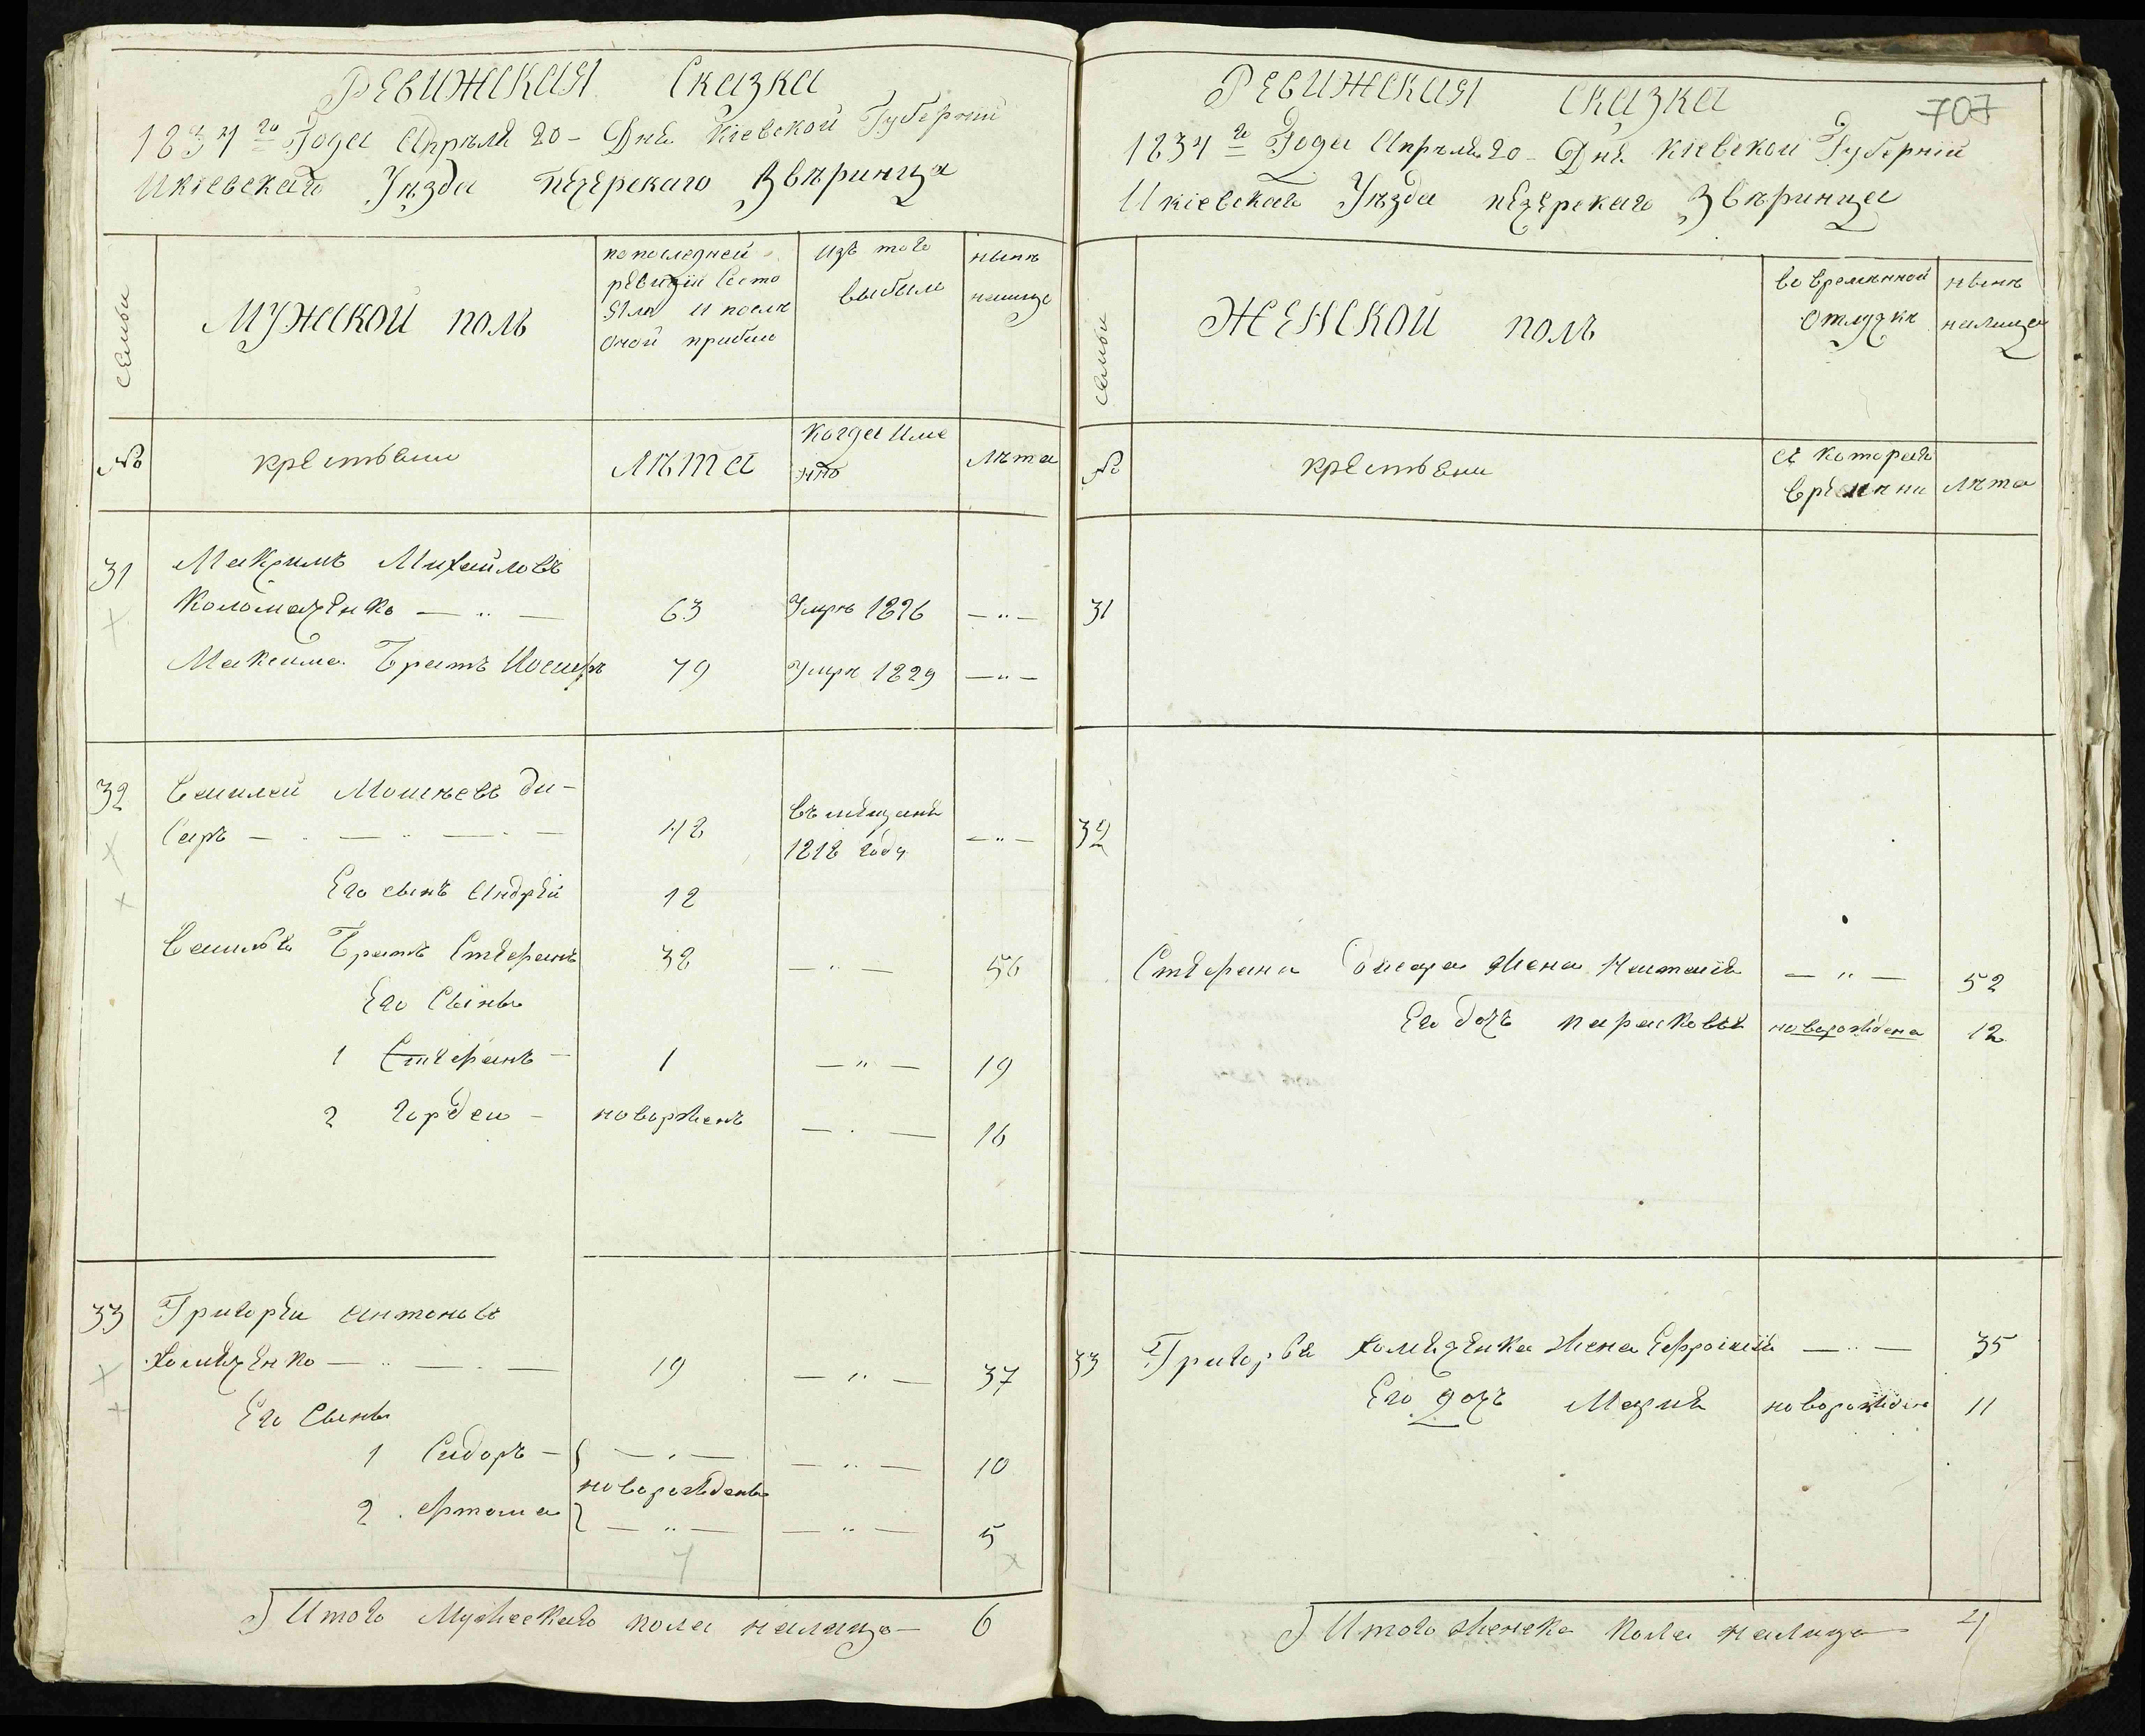 РЕВИЖСКАЯ Сказка
1834го Года Апреля 20 - Дня Кіевской Губерніи
Икіевскаго Уезда печерскаго Звѣринца
семьи
МУЖСКОЙ ПОЛЪ
по последней
ревизіи Состо
яло и после
оной прибыло
изъ того
выбыло
нынѣ
налицо
№
крестьяни
Лѣта
Когда Име
нно
Лѣта
31
Максимъ Михайловъ
Коломаченко — „ —
63
Умре 1826
— „ —
Максима Братъ Иосифъ
49
Умре 1829
— „ —
32
Василей Моисѣевъ ди-
саръ — . — „ — . —
42
въ мещане
1818 году
— „ —
Его сынъ Андрей
12
Василья Братъ Степанъ
38
— „ —
56
Его Сыны
1 Степанъ —
1
— „ —
19
2 Гордеи —
новорженъ
— . —
16
33
Григореи Антоновъ
Хомѣченко — „ — . —
19
— „ —
37
Его Сыны
1 Сидоръ —
— „ —
— „ —
10
новорожденъ
2 Артома
— „ —
— „ —
5
Итого Мужескаго пола налицо — 6
707
РЕВИЖСКАЯ СКАЗКА
1834го Года Апреля 20 - Дня Кіевской Губерніи
Икіевскаго Уезда печерскаго Звѣринца
семьи
ЖЕНСКОЙ ПОЛЪ
во временной
отлучке
нынѣ
налицо
№
крестьяни
съ котораго
времени
Лѣта
31
32
Степана Дисара жена Настасія
— „ —
52
Его дочъ парасковья
новорождена
12
33
Григорья Хомѣченка жена Ефросинія
— „ —
35
Его дочъ Мария
новорождена
11
Итого женска пола налицо — 4